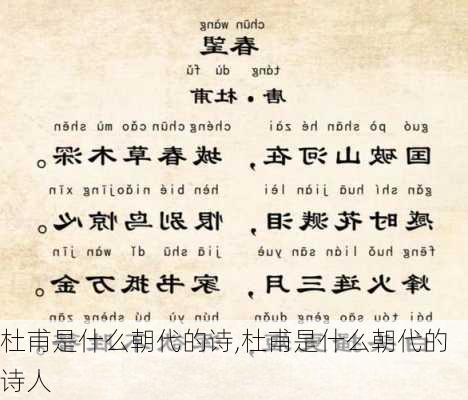 chūn wàng
春望
táng dù fǔ
唐·杜甫
guó pò shān hé zài chéng chūn cǎo mù shēn
国破山河在，城春草木深。
gǎn shí huā jiàn lèi hèn bié niǎo jīng xīn
感时花溅泪，恨别鸟惊心。
fēng huǒ lián sān yuè jiā shū dǐ wàn jīn
烽火连三月，家书抵万金。
tóu sāo gèng duǎn yù bù shèng
杜甫是什么朝代的诗,杜甫是什么朝代的
诗人